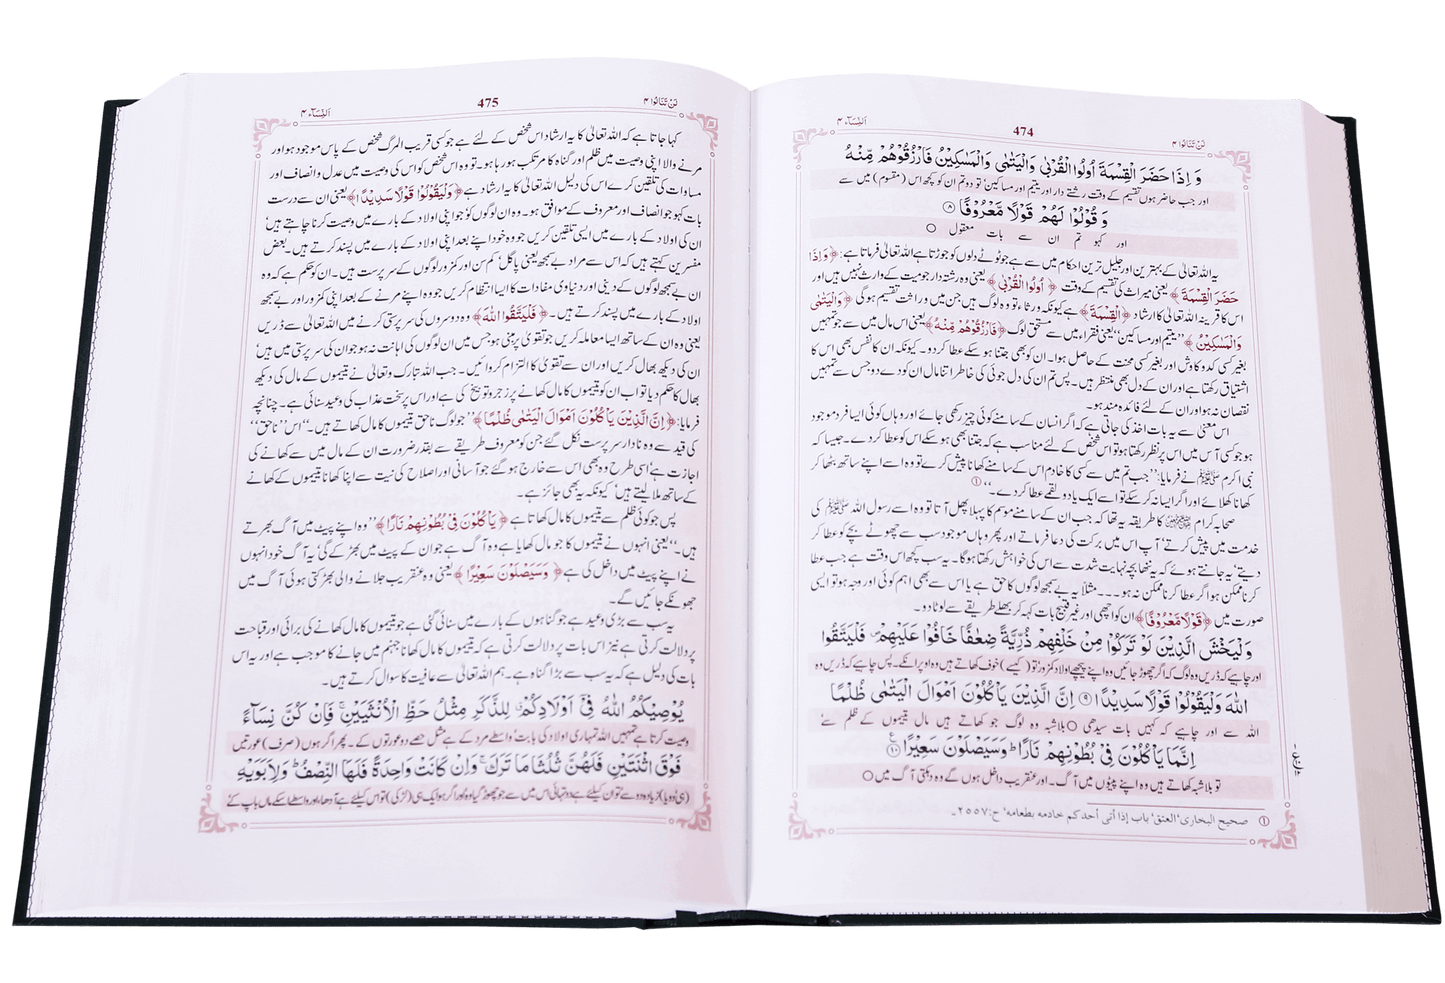 لَنْ تَنَالُوا ۴
474
اَلنِّسَآء ۴
وَ اِذَا حَضَرَ الْقِسْمَةَ اُولُوا الْقُرْبٰى وَالْيَتٰمٰى وَالْمَسٰكِيْنُ فَارْزُقُوْهُمْ مِّنْهُ
اور جب حاضر ہوں تقسیم کے وقت رشتے دار اور یتیم اور مساکین' تو دو تم ان کو کچھ اس (مقسوم) میں سے
وَ قُوْلُوْا لَهُمْ قَوْلًا مَّعْرُوْفًا ۸
اور کہو تم ان سے بات معقول
یہ اللہ تعالیٰ کے بہترین اور جلیل ترین احکام میں سے ہے جو ٹوٹے دلوں کو جوڑتا ہے اللہ تعالیٰ فرماتا ہے: ﴿وَ اِذَا
حَضَرَ الْقِسْمَةَ﴾ یعنی میراث کی تقسیم کے وقت ﴿اُولُوا الْقُرْبٰى﴾ یعنی وہ رشتہ دار جو میت کے وارث نہیں ہیں اور
اس کا قرینہ اللہ تعالیٰ کا ارشاد ﴿الْقِسْمَةَ﴾ ہے کیونکہ ورثاء تو وہ لوگ ہیں جن میں وراثت تقسیم ہوگی ﴿وَالْيَتٰمٰى
وَالْمَسٰكِيْنُ﴾ ''یتیم اور مساکین'' یعنی فقراء میں سے مستحق لوگ ﴿فَارْزُقُوْهُمْ مِّنْهُ﴾ یعنی اس مال میں سے جو تمہیں
بغیر کسی کدو کاوش اور بغیر کسی محنت کے حاصل ہوا۔ ان کو بھی جتنا ہو سکے عطا کر دو۔ کیونکہ ان کا نفس بھی اس کا
اشتیاق رکھتا ہے اور ان کے دل بھی منتظر ہیں۔ پس تم ان کی دل جوئی کی خاطر اتنا مال ان کو دے دو جس سے تمہیں
نقصان نہ ہو اور ان کے لئے فائدہ مند ہو۔
اس معنی سے یہ بات اخذ کی جاتی ہے کہ اگر انسان کے سامنے کوئی چیز رکھی جائے اور وہاں کوئی ایسا فرد موجود
ہو جو کسی آس میں اس پر نظر رکھتا ہو تو اس شخص کے لئے مناسب ہے کہ جتنا بھی ہو سکے اس کو عطا کر دے۔ جیسا کہ
نبی اکرم ﷺ نے فرمایا: ''جب تم میں سے کسی کا خادم اس کے سامنے کھانا پیش کرے تو وہ اسے اپنے ساتھ بٹھا کر
کھانا کھلائے اور اگر ایسا نہ کر سکے تو اسے ایک یا دو لقمے عطا کر دے۔'' ①
صحابہ کرام کا طریقہ یہ تھا کہ جب ان کے سامنے موسم کا پہلا پھل آتا تو وہ اسے رسول اللہ ﷺ کی
خدمت میں پیش کرتے' آپ اس میں برکت کی دعا فرماتے اور پھر وہاں موجود سب سے چھوٹے بچے کو عطا کر
دیتے' یہ جانتے ہوئے کہ یہ ننھا بچہ نہایت شدت سے اس کی خواہش رکھتا ہوگا۔ یہ سب کچھ اس وقت ہے جب عطا
کرنا ممکن ہو اگر عطا کرنا ممکن نہ ہو۔۔۔ مثلاً یہ بے سمجھ لوگوں کا حق ہے یا اس سے بھی اہم کوئی اور وجہ ہو تو ایسی
صورت میں ﴿قَوْلًا مَّعْرُوْفًا﴾ ان کو اچھی اور غیر قبیح بات کہہ کر بھلے طریقے سے لوٹا دو۔
وَلْيَخْشَ الَّذِيْنَ لَوْ تَرَكُوْا مِنْ خَلْفِهِمْ ذُرِّيَّةً ضِعٰفًا خَافُوْا عَلَيْهِمْ ۪ فَلْيَتَّقُوا
اور چاہیے کہ ڈریں وہ لوگ کہ اگر چھوڑ جائیں وہ اپنے پیچھے اولاد کمزور' تو (کیسے) خوف کھاتے ہیں وہ اوپر انکے۔ پس چاہیے کہ ڈریں وہ
اللّٰهَ وَلْيَقُوْلُوْا قَوْلًا سَدِيْدًا ۹ اِنَّ الَّذِيْنَ يَاْكُلُوْنَ اَمْوَالَ الْيَتٰمٰى ظُلْمًا
اللہ سے اور چاہیے کہ کہیں بات سیدھی بلاشبہ وہ لوگ جو کھاتے ہیں مال یتیموں کے ظلم سے'
اِنَّمَا يَاْكُلُوْنَ فِيْ بُطُوْنِهِمْ نَارًا ؕ وَسَيَصْلَوْنَ سَعِيْرًا ۱۰
تو بلا شبہ کھاتے ہیں وہ اپنے پیٹوں میں آگ۔ اور عنقریب داخل ہوں گے وہ دہکتی آگ میں
① صحيح البخارى' العتق' باب إذا أتى أحدكم خادمه بطعامه' ح:٢٥٥٧۔
لَنْ تَنَالُوا ۴
475
اَلنِّسَآء ۴
کہا جاتا ہے کہ اللہ تعالیٰ کا یہ ارشاد اس شخص کے لئے ہے جو کسی قریب المرگ شخص کے پاس موجود ہو اور
مرنے والا اپنی وصیت میں ظلم اور گناہ کا مرتکب ہو رہا ہو۔ تو وہ اس شخص کو اس کی وصیت میں عدل و انصاف اور
مساوات کی تلقین کرے اس کی دلیل اللہ تعالیٰ کا یہ ارشاد ہے ﴿وَلْيَقُوْلُوْا قَوْلًا سَدِيْدًا﴾ یعنی ان سے درست
بات کہو جو انصاف اور معروف کے موافق ہو۔ وہ ان لوگوں کو جو اپنی اولاد کے بارے میں وصیت کرنا چاہتے ہیں'
ان کی اولاد کے بارے میں ایسی تلقین کریں جو وہ خود اپنے بعد اپنی اولاد کے بارے میں پسند کرتے ہیں۔ بعض
مفسرین کہتے ہیں کہ اس سے مراد بے سمجھ یعنی پاگل' کم سن اور کمزور لوگوں کے سرپرست ہیں۔ ان کو حکم ہے کہ وہ
ان بے سمجھ لوگوں کے دینی اور دنیاوی مفادات کا ایسا انتظام کریں جو وہ اپنے مرنے کے بعد اپنی کمزور اور بے سمجھ
اولاد کے بارے میں پسند کرتے ہیں۔ ﴿فَلْيَتَّقُوا اللّٰهَ﴾ وہ دوسروں کی سرپرستی کرنے میں اللہ تعالیٰ سے ڈریں
یعنی وہ ان کے ساتھ ایسا معاملہ کریں جو تقویٰ پر مبنی ہو جس میں ان لوگوں کی اہانت نہ ہو جو ان کی سرپرستی میں ہیں'
ان کی دیکھ بھال کریں اور ان سے تقویٰ کا التزام کروائیں۔ جب اللہ تبارک وتعالیٰ نے یتیموں کے مال کی دیکھ
بھال کا حکم دیا تو اب ان کو یتیموں کا مال کھانے پر زجر و توبیخ کی ہے اور اس پر سخت عذاب کی وعید سنائی ہے۔ چنانچہ
فرمایا: ﴿اِنَّ الَّذِيْنَ يَاْكُلُوْنَ اَمْوَالَ الْيَتٰمٰى ظُلْمًا﴾ ''جو لوگ ناحق یتیموں کا مال کھاتے ہیں۔'' اس ''ناحق''
کی قید سے وہ نادار سرپرست نکل گئے جن کو معروف طریقے سے بقدر ضرورت ان کے مال میں سے کھانے کی
اجازت ہے' اسی طرح وہ بھی اس سے خارج ہو گئے جو آسانی اور اصلاح کی نیت سے اپنا کھانا یتیموں کے کھانے
کے ساتھ ملا لیتے ہیں' کیونکہ یہ بھی جائز ہے۔
پس جو کوئی ظلم سے یتیموں کا مال کھاتا ہے ﴿يَاْكُلُوْنَ فِيْ بُطُوْنِهِمْ نَارًا﴾ ''وہ اپنے پیٹ میں آگ بھرتے
ہیں۔'' یعنی انہوں نے یتیموں کا جو مال کھایا ہے وہ آگ ہے جو ان کے پیٹ میں بھڑکے گی' یہ آگ خود انہوں
نے اپنے پیٹ میں داخل کی ہے ﴿وَسَيَصْلَوْنَ سَعِيْرًا﴾ یعنی وہ عنقریب جلانے والی بھڑکتی ہوئی آگ میں
جھونکے جائیں گے۔
یہ سب سے بڑی وعید ہے جو گناہوں کے بارے میں سنائی گئی ہے جو یتیموں کا مال کھانے کی برائی اور قباحت
پر دلالت کرتی ہے نیز اس بات پر دلالت کرتی ہے کہ یتیموں کا مال کھانا جہنم میں جانے کا موجب ہے اور یہ اس
بات کی دلیل ہے کہ یہ سب سے بڑا گناہ ہے۔ ہم اللہ تعالیٰ سے عافیت کا سوال کرتے ہیں۔
يُوْصِيْكُمُ اللّٰهُ فِيْٓ اَوْلَادِكُمْ ۤ لِلذَّكَرِ مِثْلُ حَظِّ الْاُنْثَيَيْنِ ۚ فَاِنْ كُنَّ نِسَآءً
وصیت کرتا ہے تمہیں اللہ تمہاری اولاد کی بابت' واسطے مرد کے ہے مثل حصے دو عورتوں کے۔ پھر اگر ہوں (صرف) عورتیں
فَوْقَ اثْنَتَيْنِ فَلَهُنَّ ثُلُثَا مَا تَرَكَ ۚ وَاِنْ كَانَتْ وَاحِدَةً فَلَهَا النِّصْفُ ؕ وَلِاَبَوَيْهِ
(ہی' دو یا) زیادہ دو سے' تو ان کیلئے ہے دو تہائی اس میں سے جو چھوڑ گیا وہ اور اگر ہو ایک ہی (لڑکی) تو اس کیلئے ہے آدھا' اور واسطے اسکے ماں باپ کے'